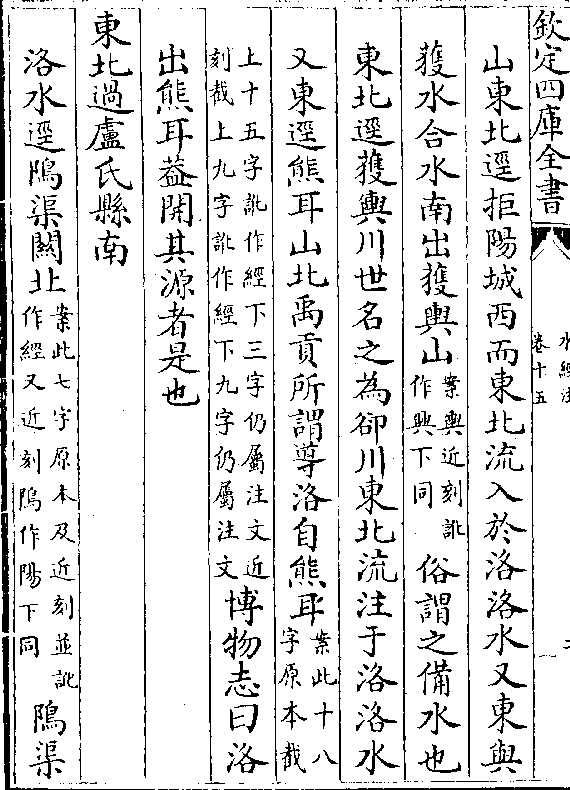 欽定四庫全書
水經注
卷十五
山東北逕拒陽城西而東北流入於洛洛水又東與
獲水合水南出獲輿山案輿近刻訛作興下同俗謂之備水也
東北逕獲輿川世名之為卻川東北流注于洛洛水
又東逕熊耳山北禹貢所謂導洛自熊耳案此十八字原本截
上十五字訛作經下三字仍屬注文近刻截上九字訛作經下九字仍屬注文博物志曰洛
出熊耳葢開其源者是也
東北過盧氏縣南
洛水逕隝渠關北案此七字原本及近刻並訛作經又近刻隝作陽下同隝渠